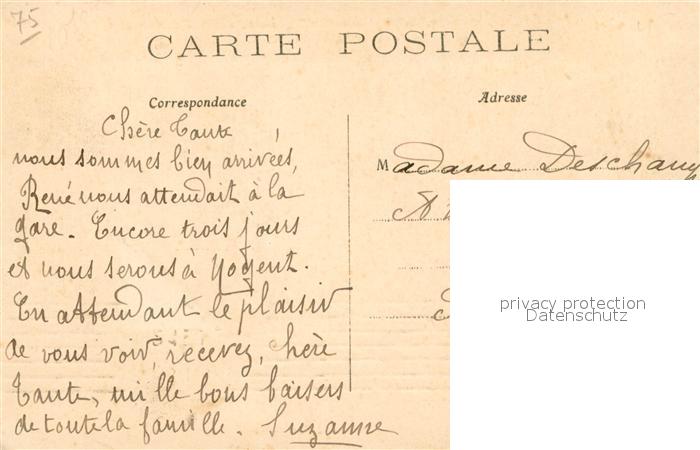 75
CARTE POSTALE
Correspondance
Adresse
Chère Tante,
nous sommes bien arrivées,
René nous attendait à la
gare. Encore trois jours
et nous serons à Nogent.
En attendant le plaisir
de vous voir, recevez, chère
Tante, mille bons baisers
de toute la famille. Suzanne
Madame Deschamp
privacy protection
Datenschutz